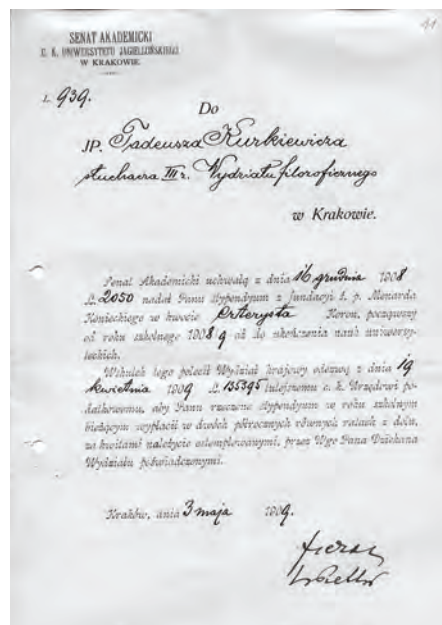 41
SENAT AKADEMICKI
C. K. UNIWERSYTETU JAGIELLOŃSKIEGO
W KRAKOWIE.
L. 939.
Do
JP. Tadeusza Kurkiewicza
słuchacza III r. Wydziału filozoficznego
w Krakowie.
Senat Akademicki uchwałą z dnia 16 grudnia 1908
L. 2050 nadał Panu stypendyum z fundacyi ś. p. Menarda
Konieckiego w kwocie czterysta Koron, począwszy
od roku szkolnego 1908/9 aż do ukończenia nauk uniwersy-
teckich.
Wskutek tego polecił Wydział krajowy odezwą z dnia 19
kwietnia 1909 L. 135395 tutejszemu c. k. Urzędowi po-
datkowemu, aby Panu rzeczone stypendyum w roku szkolnym
bieżącym wypłacił w dwóch półrocznych równych ratach z dołu,
za kwitami należycie ostemplowanymi, przez Wgo Pana Dziekana
Wydziału poświadczonymi.
Kraków, dnia 3 maja 1909.